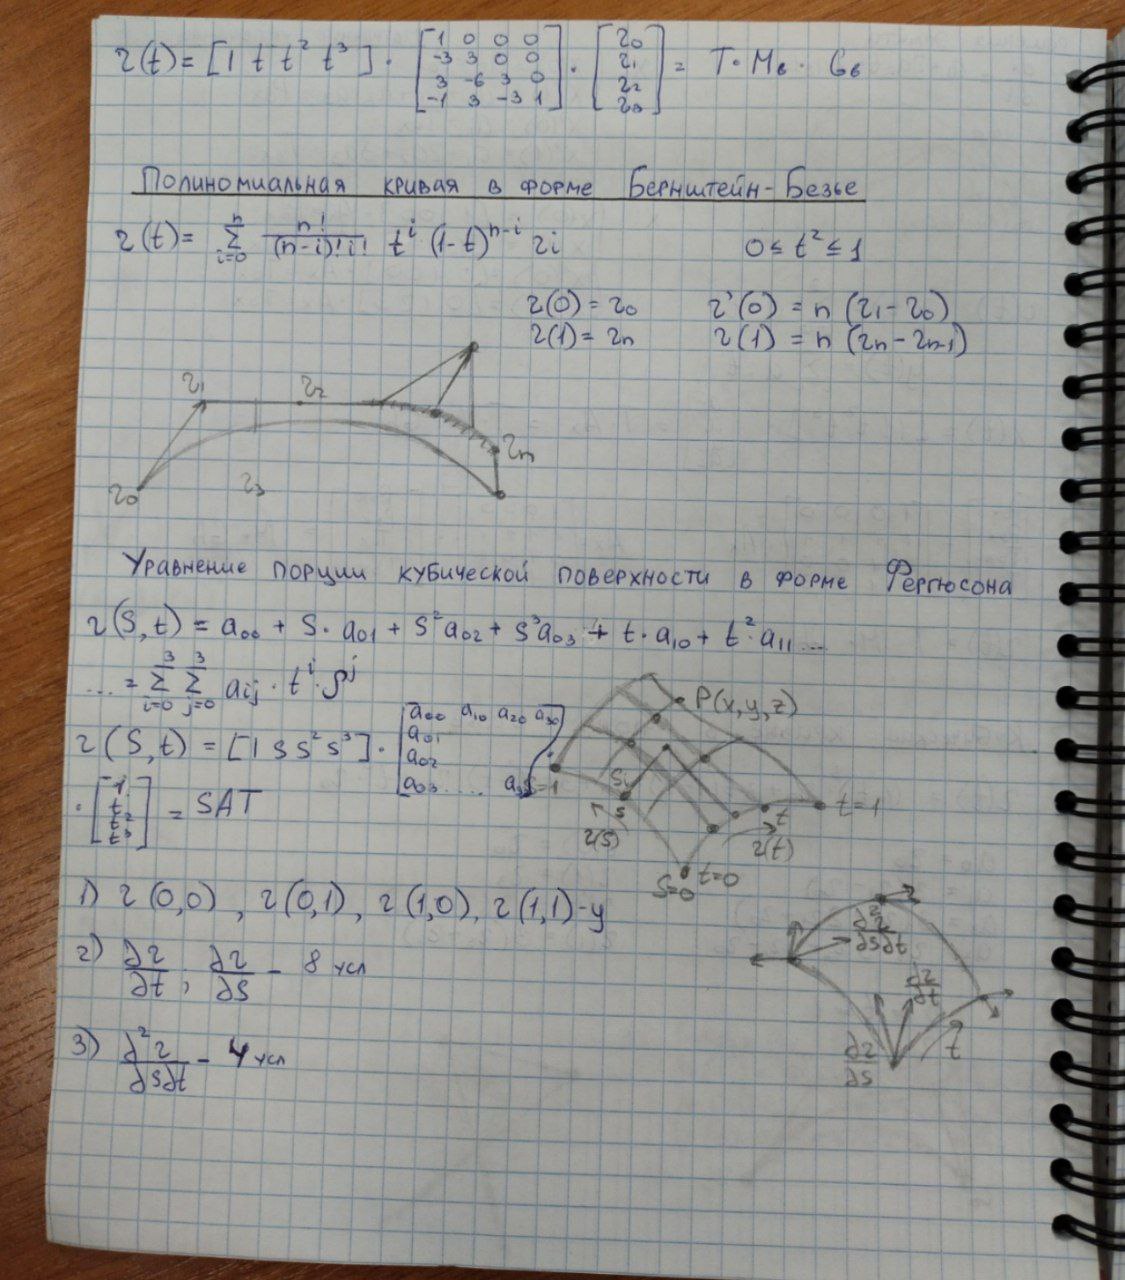 r(t) = [1 t t² t³] · [1 0 0 0; -3 3 0 0; 3 -6 3 0; -1 3 -3 1] · [r₀; r₁; r₂; r₃] = T · Mв · Gв
Полиномиальная кривая в форме Бернштейн-Безье
r(t) = Σ_{i=0}^{n} n!/((n-i)! i!) tⁱ (1-t)ⁿ⁻ⁱ rᵢ 0 ≤ t² ≤ 1
r(0) = r₀ r'(0) = n (r₁ - r₀)
r(1) = rₙ r(1) = n (rₙ - rₙ₋₁)
r₁ r₂
rₙ
r₀ r₃
Уравнение порции кубической поверхности в форме Фергюсона
r(S,t) = a₀₀ + S · a₀₁ + S² a₀₂ + S³ a₀₃ + t · a₁₀ + t² · a₁₁ ...
... = Σ_{i=0}^{3} Σ_{j=0}^{3} aᵢⱼ · tⁱ · Sʲ
P(x,y,z)
r(S,t) = [1 S S² S³] · [a₀₀ a₁₀ a₂₀ a₃₀; a₀₁; a₀₂; a₀₃ ....
S=1
· [1; t; t²; t³] = SAT
Sᵢ
S
r(S)
t
t=1
r(t)
S=0 t=0
1) r(0,0), r(0,1), r(1,0), r(1,1) - у
2) ∂r/∂t, ∂r/∂S - 8 усл
3) ∂²r/∂S∂t - 4 усл
∂²r/∂S∂t
∂r/∂t
∂r/∂S
t